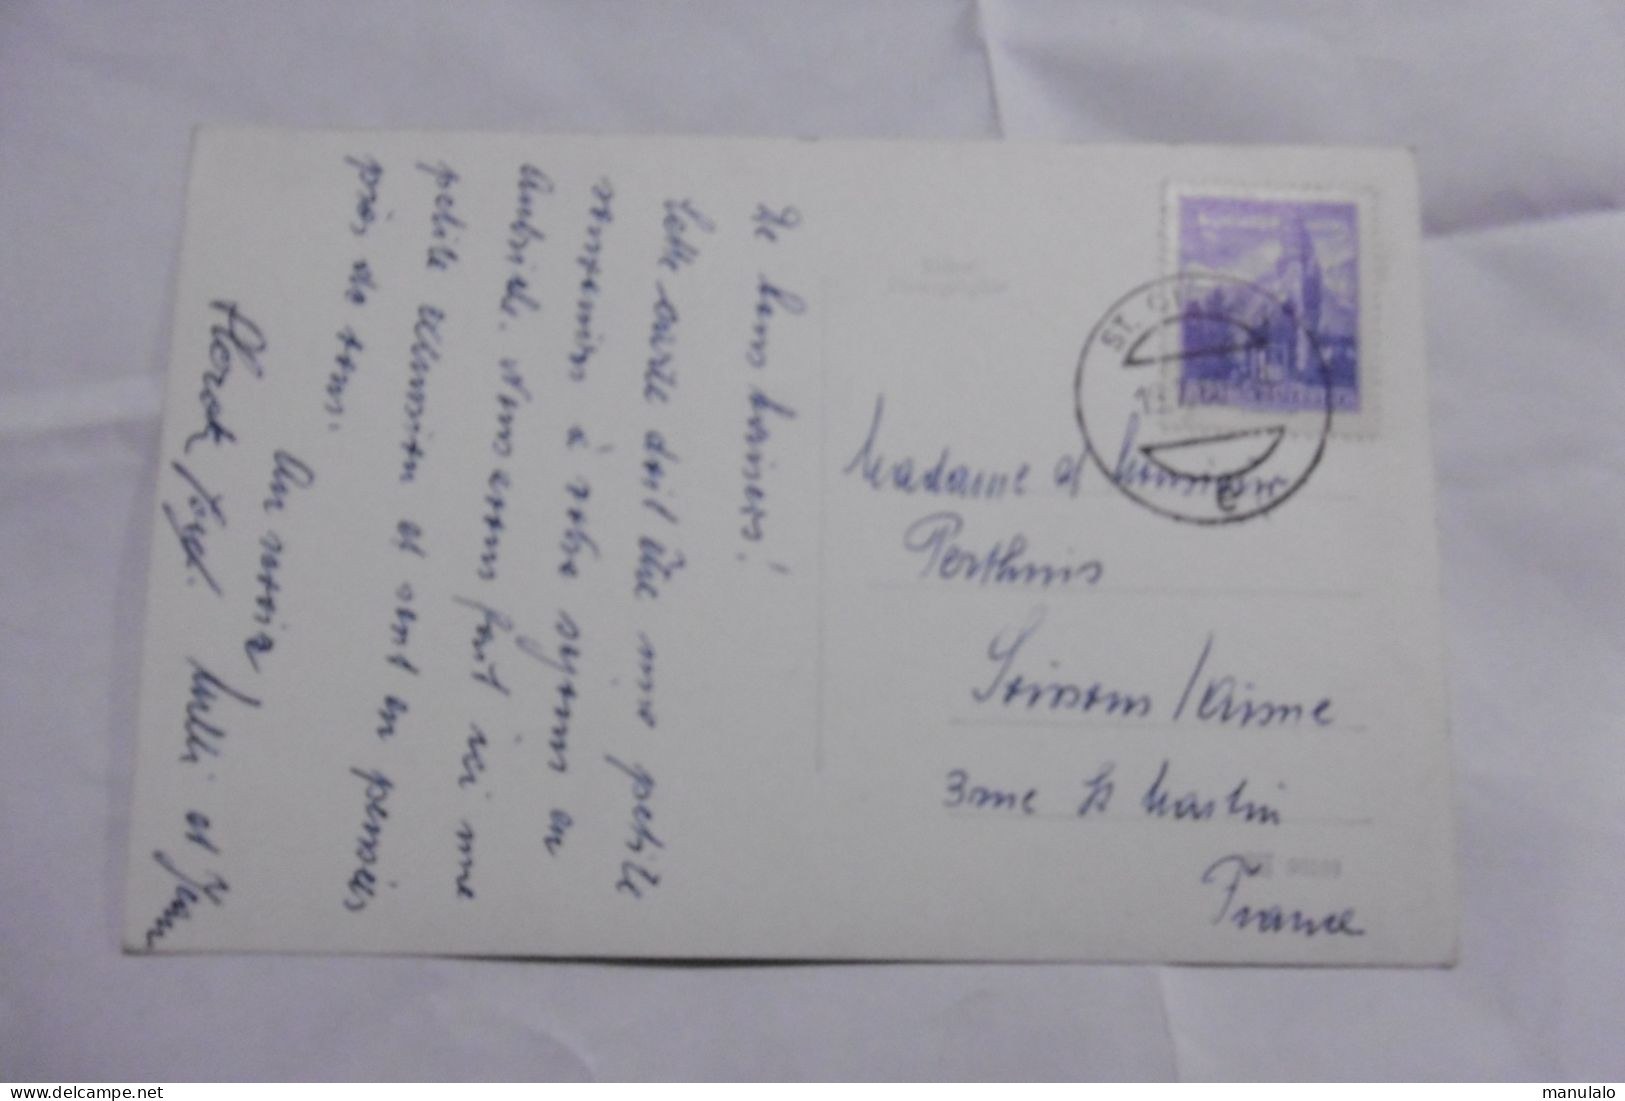 De bons baisers!
Cette carte doit être une petite
souvenir à votre séjour en
Autriche. Nous avons fait ici une
petite excursion et ont en pensées
près de vous.
Au revoir
Horst, Willi et
ST.
Madame et Monsieur
Perthuis
Soissons / Aisne
3 rue St Martin
France
delcampe.net
manulalo